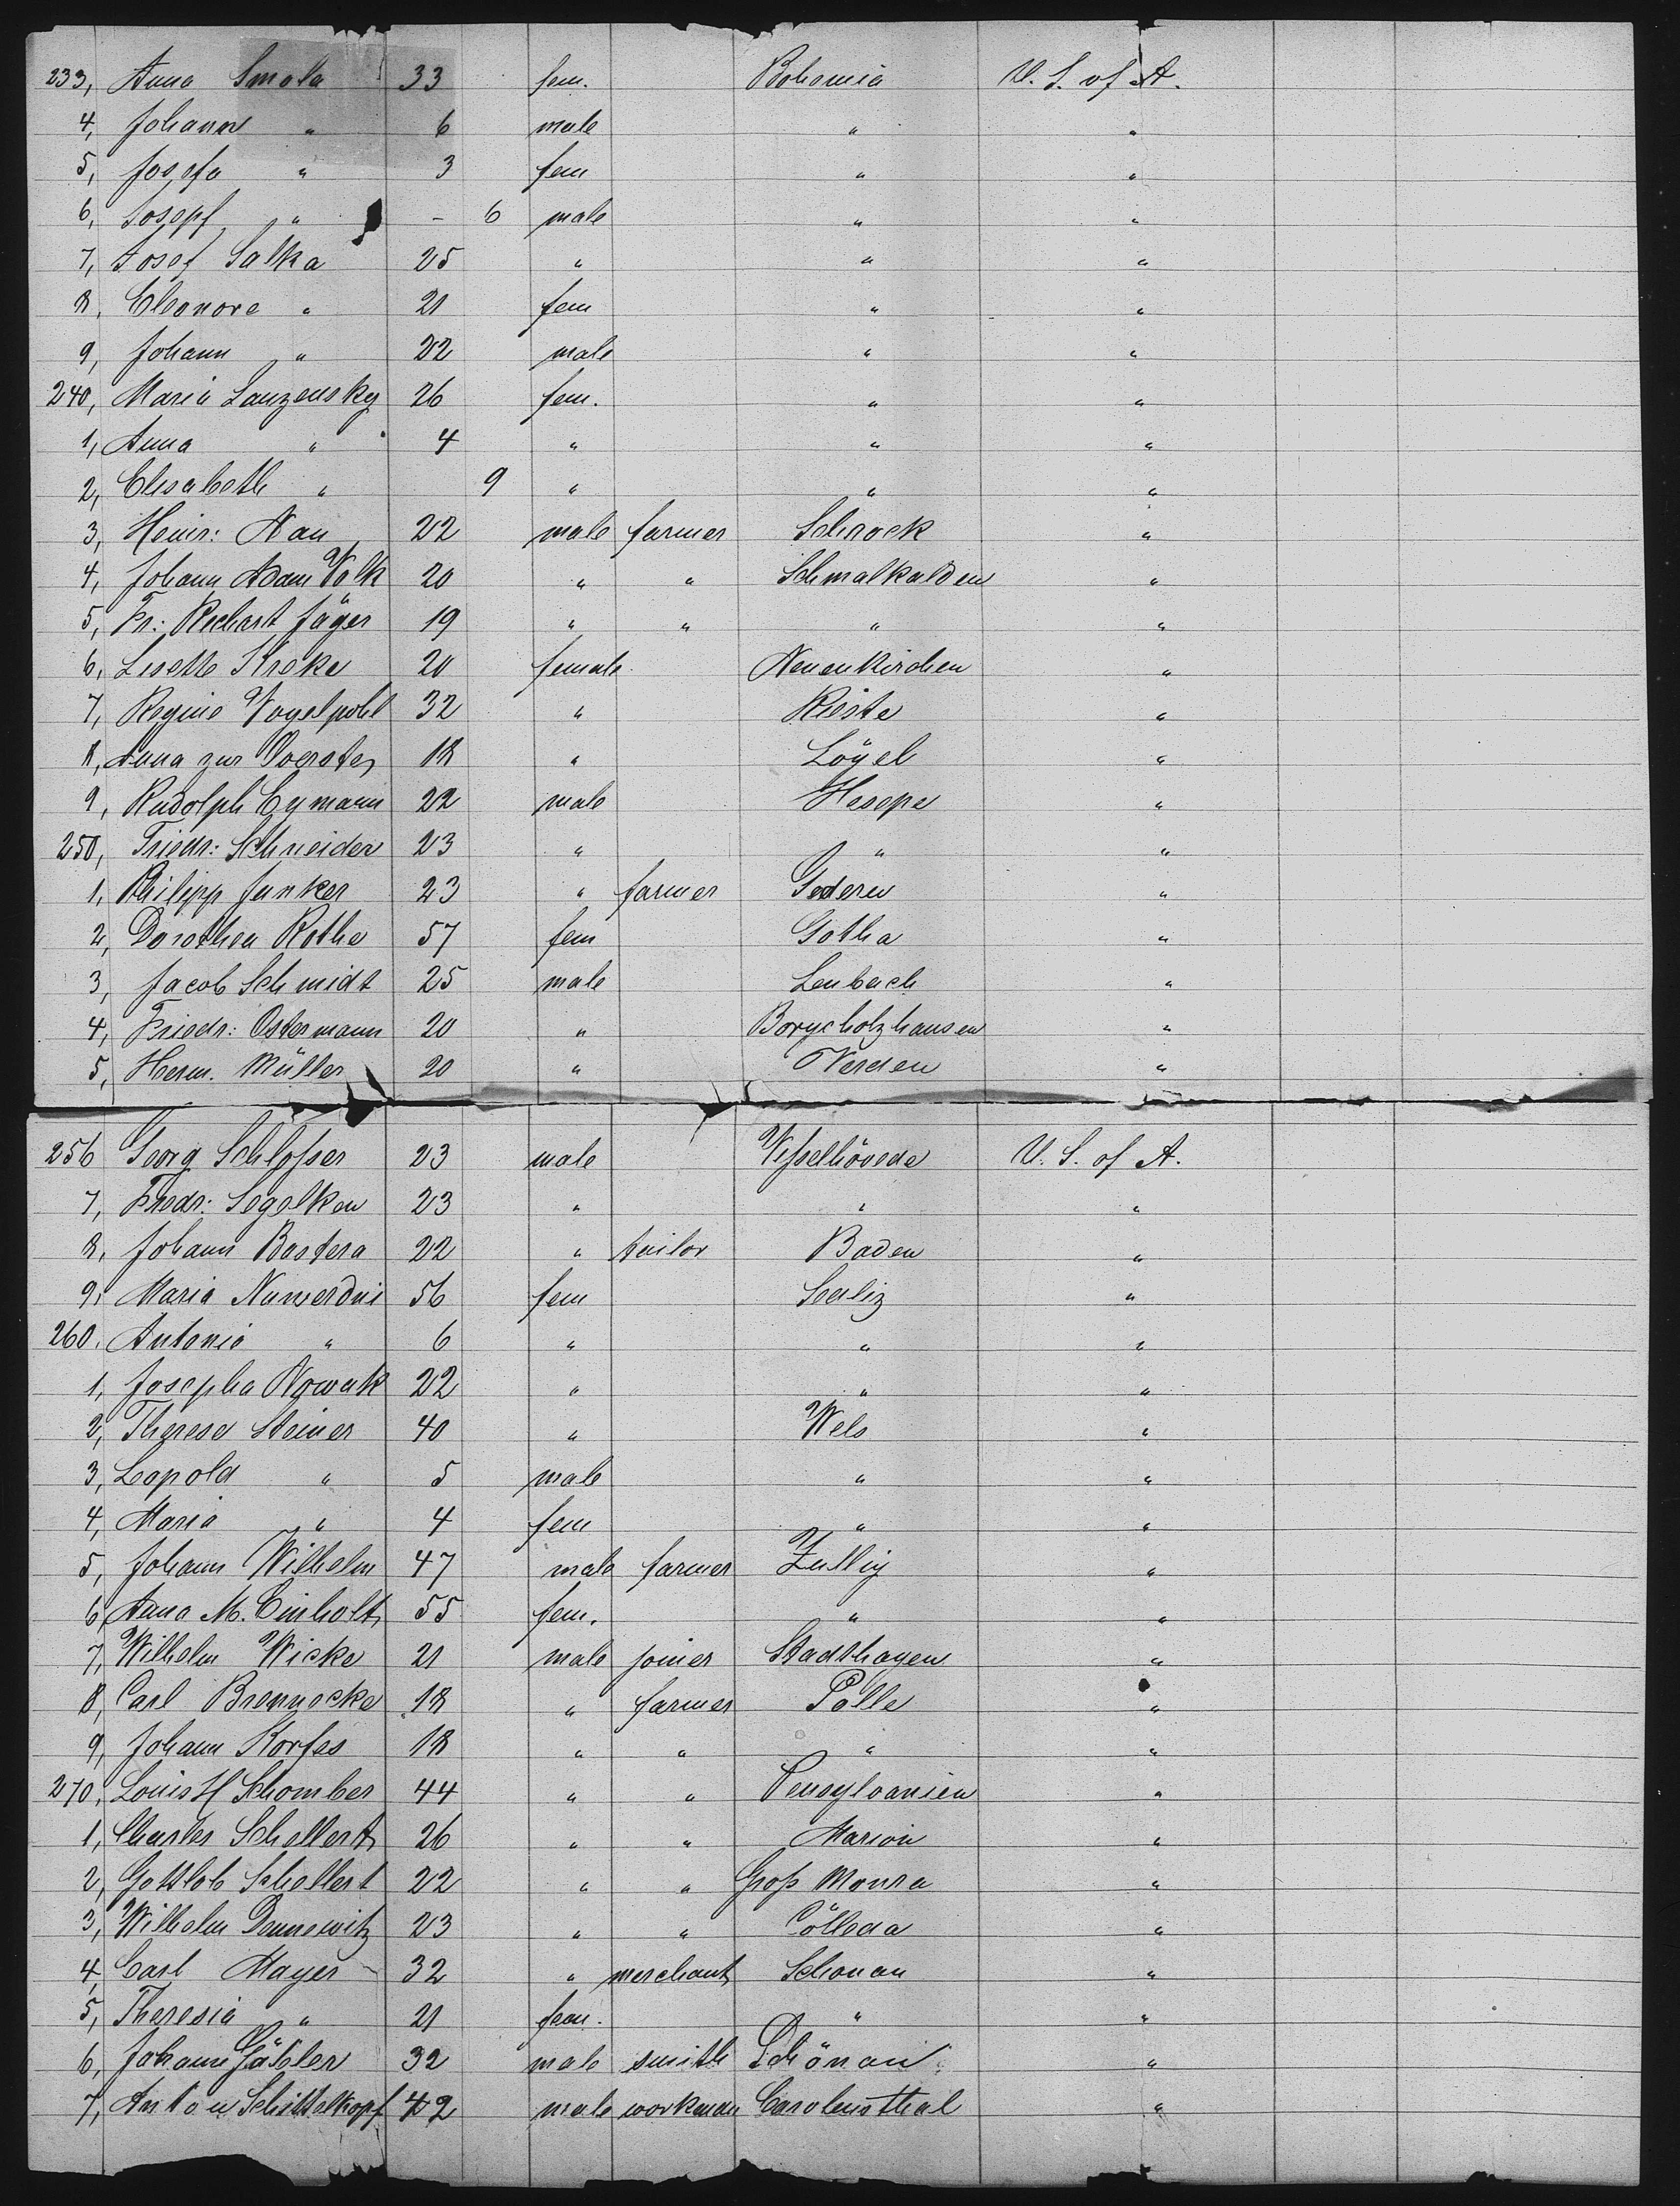 233, Anna Smola 33 fem. Bohemia U. S. of A.
4, Johann " 6 male " "
5, Josefa " 3 fem " "
6, Josepf " - 6 male " "
7, Josef Salka 25 " " "
8, Eleonore " 21 fem " "
9, Johann " 22 male " "
240, Maria Lanzensky 26 fem. " "
1, Anna " 4 " " "
2, Elisabeth " 9 " " "
3, Heinr: Nau 22 male farmer Schrock "
4, Johann Adam Volk 20 " " Schmalkalden "
5, Fr: Richart Jäger 19 " " " "
6, Lisette Kreke 20 female Neuenkirchen "
7, Regine Vogelpohl 32 " Rieste "
8, Anna zur Oveste 18 " Lögel "
9, Rudolph Eymann 22 male Hesepe "
250, Friedr: Schneider 23 " " "
1, Philipp Junker 23 " farmer Gedern "
2, Dorothea Rothe 57 fem Gotha "
3, Jacob Schmidt 25 male Leubach "
4, Friedr: Ostermann 20 " Borgholzhausen "
5, Herm. Müller 20 " Verden "
256 Georg Schloßer 23 male Vißelhövede U. S. of A.
7, Friedr: Segelken 23 " " "
8, Johann Bastera 22 " tailor Baden "
9, Maria 56 fem Sedliz "
260, Antonie " 6 " " "
1, Josepha Nowak 22 " " "
2, Therese Steiner 40 " Wels "
3, Leopold " 5 male " "
4, Maria " 4 fem " "
5, Johann Wilhelm 47 male farmer Zullig "
6, Anna M. Einholt 55 fem. " "
7, Wilhelm Wicke 21 male joiner Stadthagen "
8, Carl Brennecke 18 " farmer Polle "
9, Johann Korfes 18 " " " "
270, Louis H Schomber 44 " " Pensylvanien "
1, Charles Schellert 26 " " Marion "
2, Gottlob Schellert 22 " " Groß Monra "
3, Wilhelm Dennewitz 23 " " Cölleda "
4, Carl Mayer 32 " merchant Schonau "
5, Theresia " 21 fem. " "
6, Johann Gäbler 32 male smith Schönau "
7, Anton Schittelkopf 42 male workman Carolinsthal "